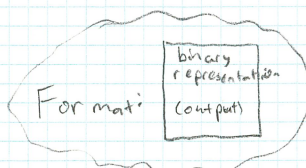 Format:
binary
representation
(output)